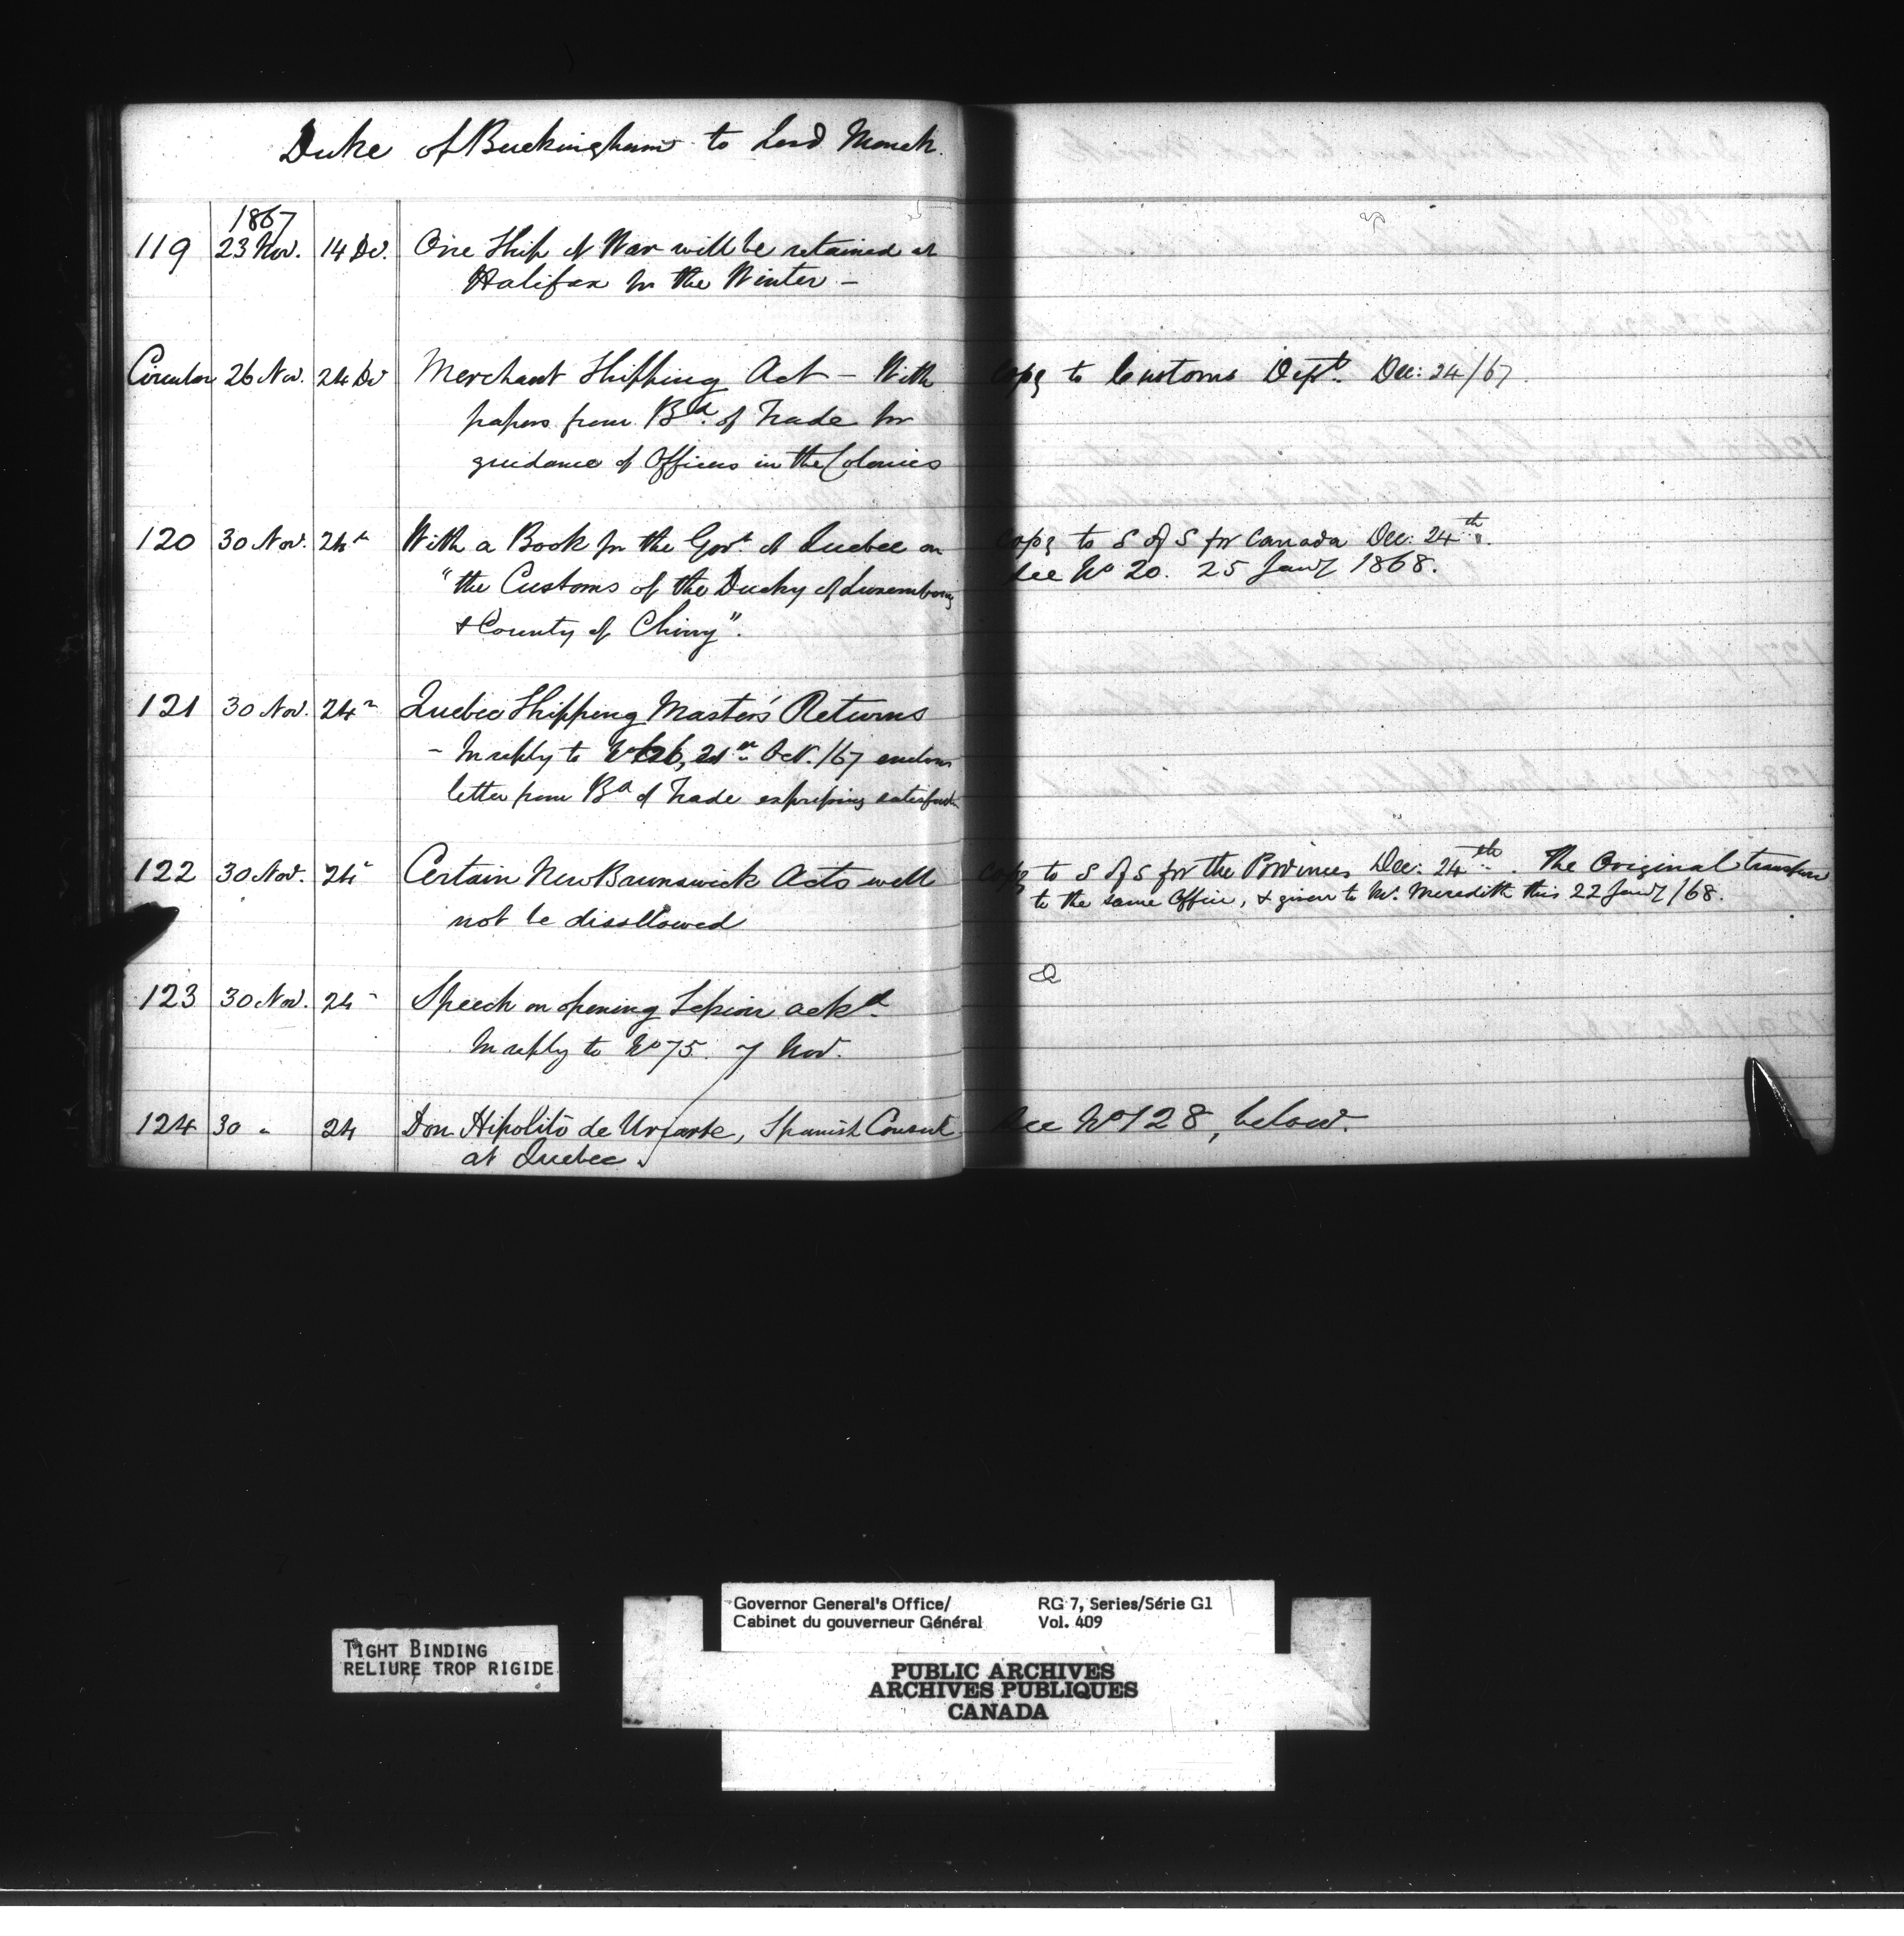 Duke of Buckingham to Lord Monck
1867
119 23 Nov. 14 De. One Ship of War will be retained at
Halifax for the Winter –
Circular 26 Nov. 24 De Merchant Shipping Act – With copy to Customs Dept. Dec: 24/67.
papers from Bd. of Trade for
guidance of Officers in the Colonies
120 30 Nov. 24 With a Book for the Govt. of Quebec on copy to S of S for Canada Dec: 24th.
"the Customs of the Duchy of Luxembourg See No 20. 25 Jany 1868.
& County of Chiny".
121 30 Nov. 24 Quebec Shipping Master's Returns
– In reply to No 26, 21st Oct. /67 encloses
letter from Bd of Trade expressing satisfaction
122 30 Nov. 24 Certain New Brunswick Acts will copy to S of S for the Provinces Dec: 24th. The Original
not be disallowed to the same Office, & given to Mr. Meredith this 22 Jany /68.
123 30 Nov. 24 Speech on opening Session ackd.
In reply to No 75. 7 Nov.
124 30 " 24 Don Hipolito de Uriarte, Spanish Consul See No 128, below.
at Quebec.
TIGHT BINDING
RELIURE TROP RIGIDE
Governor General's Office/ RG 7, Series/Série G1
Cabinet du gouverneur Général Vol. 409
PUBLIC ARCHIVES
ARCHIVES PUBLIQUES
CANADA